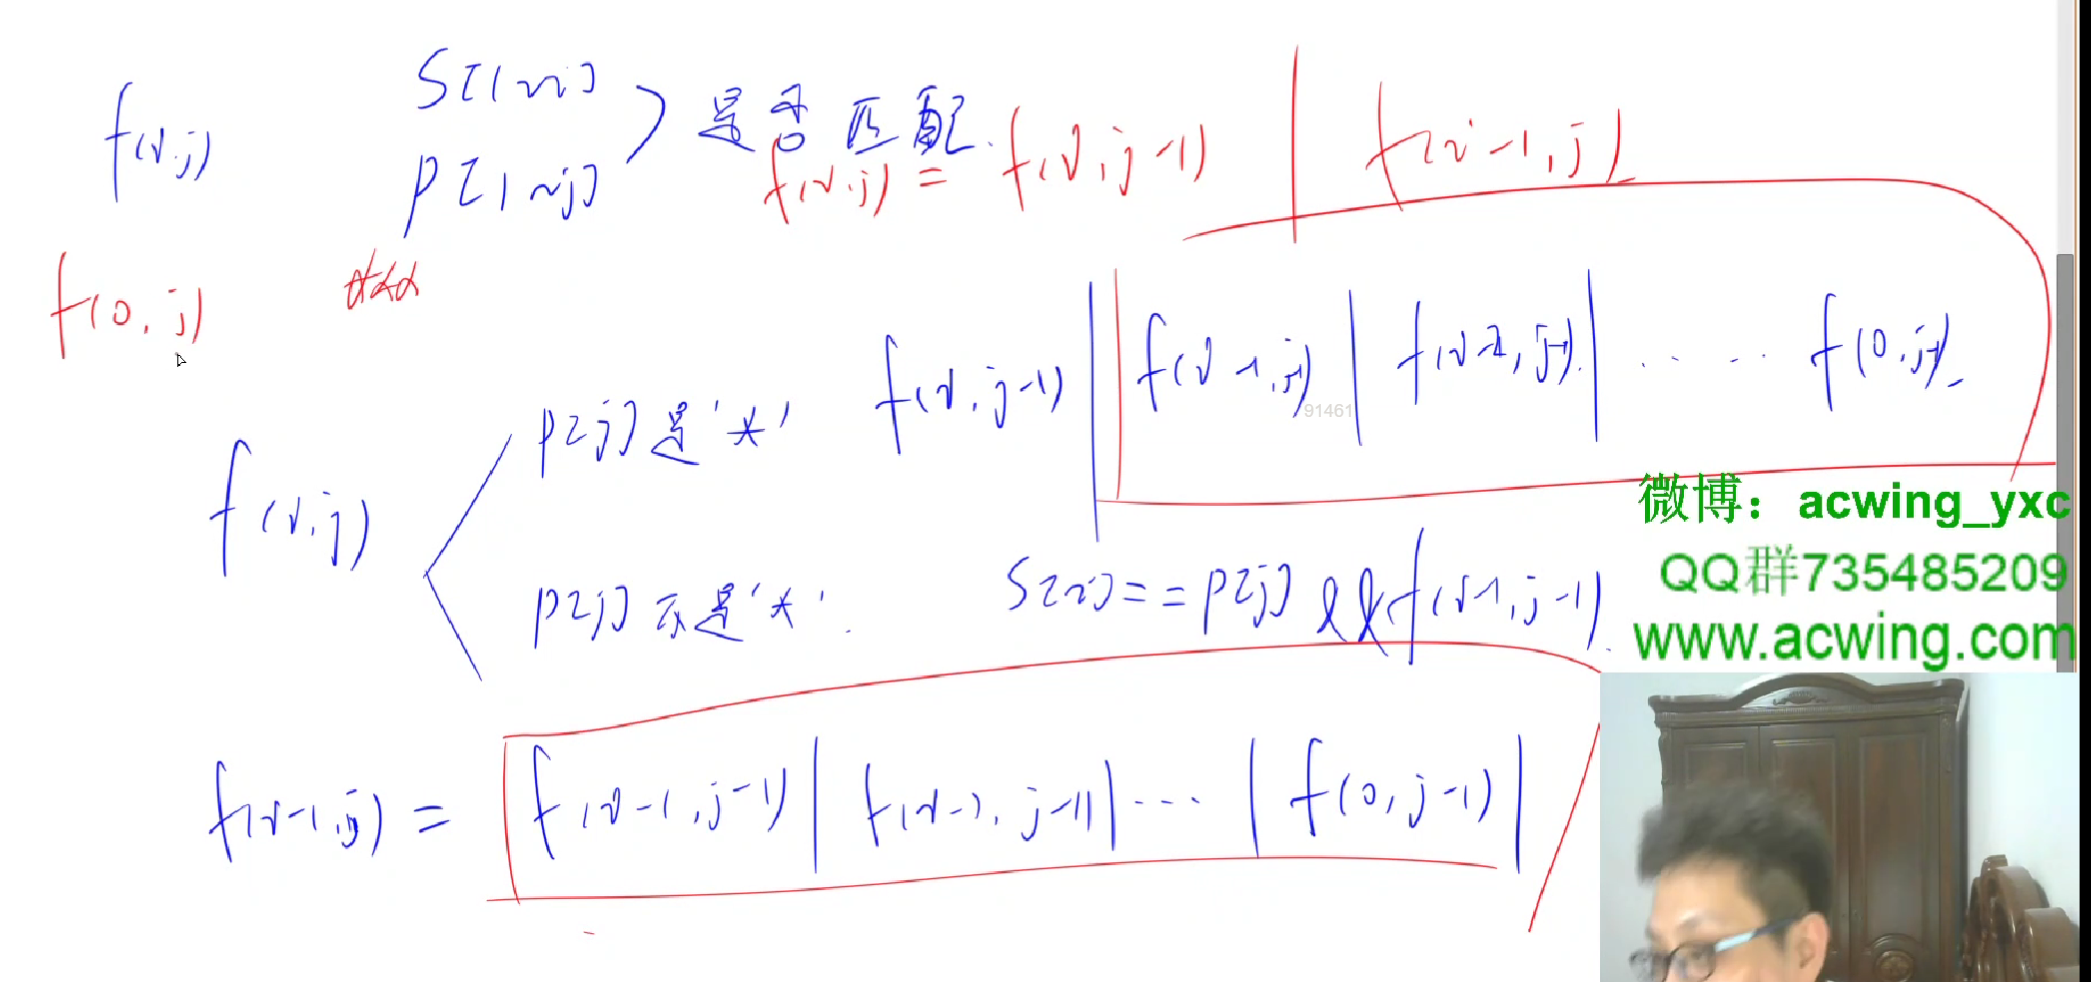 f(i,j) S[1~i] P[1~j] 是否匹配.
f(i,j) = f(i,j-1) | f(i-1,j)
f(0,j) ***
f(i,j)
p[j]是'*' f(i,j-1) | f(i-1,j-1) | f(i-2,j-1) | ...... f(0,j-1)
91461
p[j]不是'*'. s[i]==p[j] && f(i-1,j-1).
f(i-1,j) = f(i-1,j-1) | f(i-2,j-1) | ... | f(0,j-1) |
微博：acwing_yxc
QQ群735485209
www.acwing.com